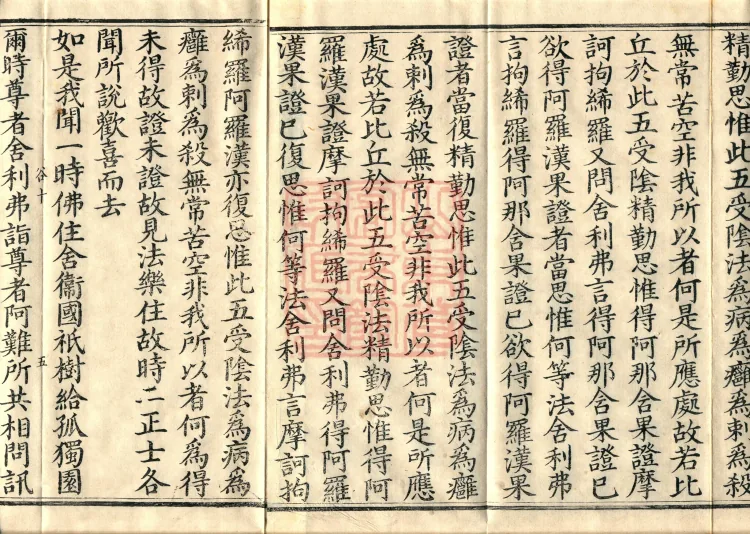 精勤思惟此五受陰法為病為癰為刺為殺
無常苦空非我所以者何是所應處故若比
丘於此五受陰精勤思惟得阿那含果證摩
訶拘絺羅又問舍利弗言得阿那含果證已
欲得阿羅漢果證者當思惟何等法舍利弗
言拘絺羅得阿那含果證已欲得阿羅漢果
證者當復精勤思惟此五受陰法為病為癰
為刺為殺無常苦空非我所以者何是所應
處故若比丘於此五受陰法精勤思惟得阿
羅漢果證摩訶拘絺羅又問舍利弗得阿羅
漢果證已復思惟何等法舍利弗言摩訶拘
絺羅阿羅漢亦復思惟此五受陰法為病為
癰為刺為殺無常苦空非我所以者何為得
未得故證未證故見法樂住故時二正士各
聞所說歡喜而去
如是我聞一時佛住舍衛國祇樹給孤獨園
谷十 五
爾時尊者舍利弗詣尊者阿難所共相問訊